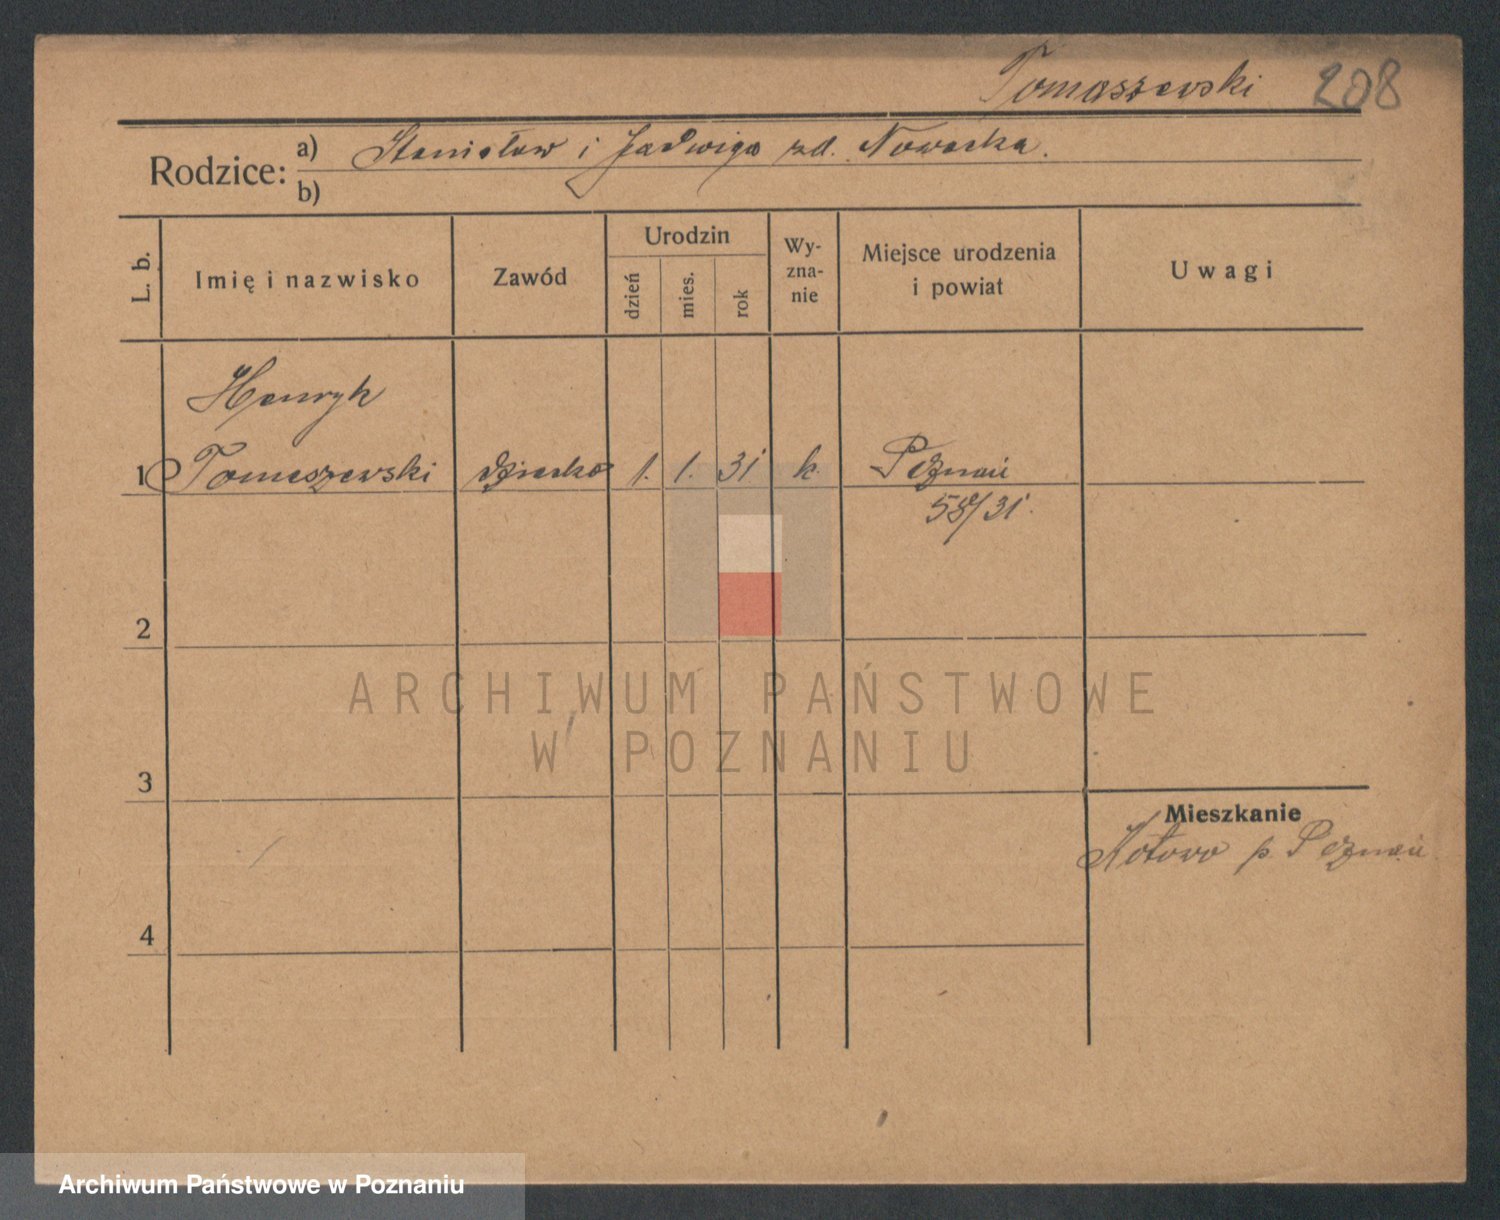 Tomaszewski 208
Rodzice: a) Stanisław i Jadwiga zd. Nowacka.
b)
L. b. Imię i nazwisko Zawód Urodzin dzień mies. rok Wyznanie Miejsce urodzenia i powiat Uwagi
Henryk
1 Tomaszewski dziecko 1. 1. 31 k. Poznań
58/31.
2
ARCHIWUM PAŃSTWOWE
W POZNANIU
3
Mieszkanie
Kotowo p. Poznań
4
Archiwum Państwowe w Poznaniu